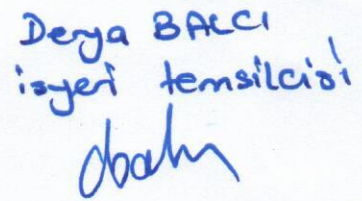 Derya BALCI
işyeri temsilcisi